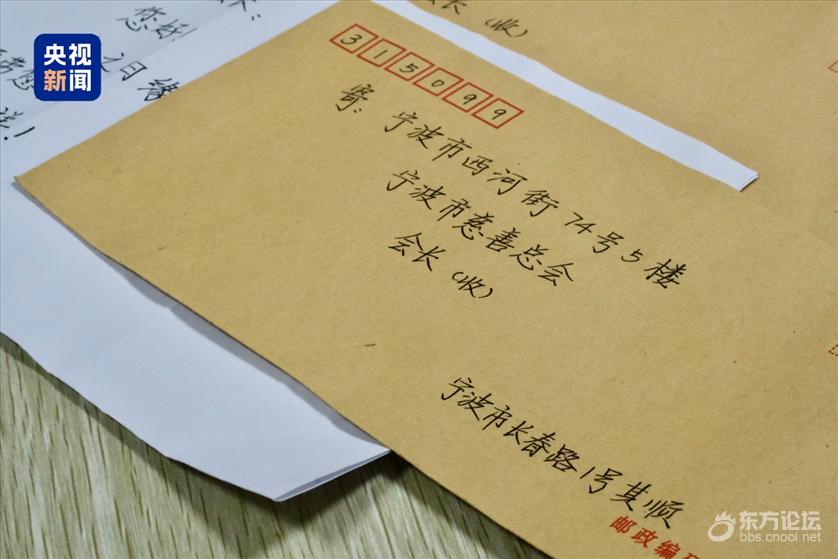 央视
新闻
您好
会长(收)
315099
寄:宁波市西河街74号5楼
宁波市慈善总会
会长(收)
宁波市长春路1号其顺
邮政编码
东方论坛
bbs.cnool.net